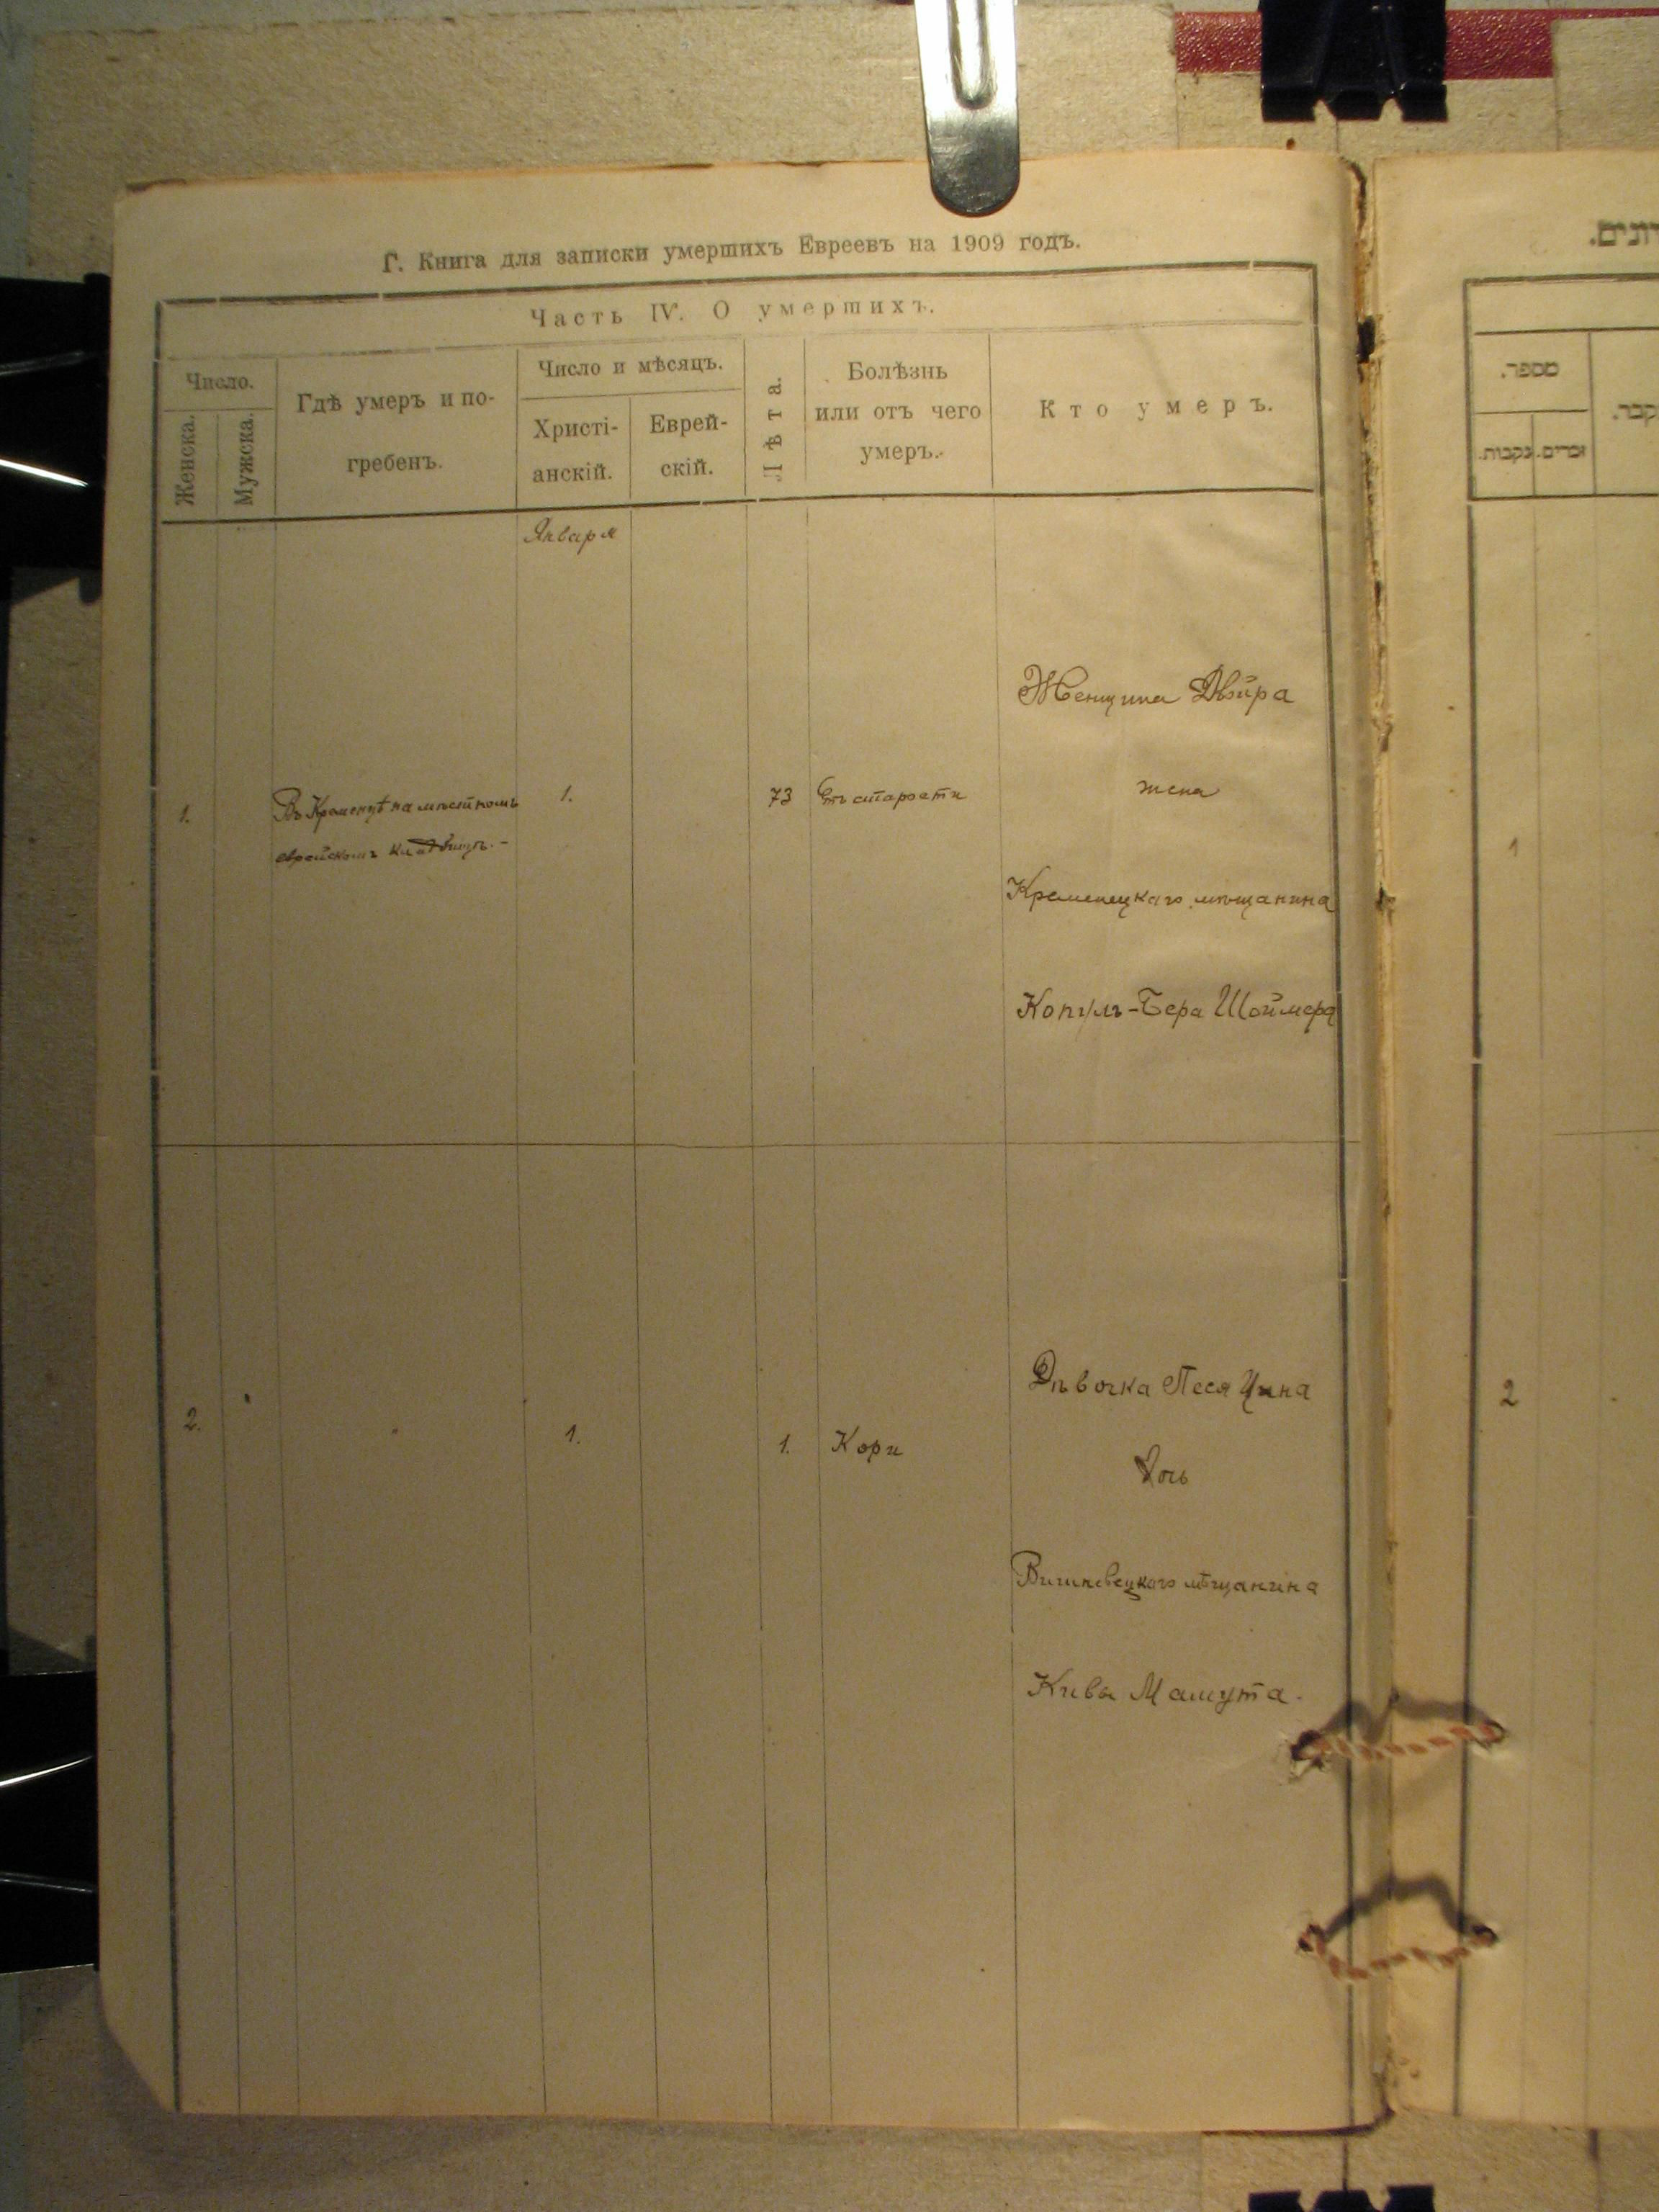 Г. Книга для записки умершихъ Евреевъ на 1909 годъ.
Часть IV. О умершихъ.
Число.
Женска.
Мужска.
Гдѣ умеръ и по-
гребенъ.
Число и мѣсяцъ.
Христі-
анскій.
Еврей-
скій.
Лѣта.
Болѣзнь
или отъ чего
умеръ.
Кто умеръ.
Января
1.
Въ Кременцѣ на мѣстномъ
еврейскомъ кладбищѣ. -
1.
73
Отъ старости
Женщина Двойра
жена
Кременецкаго мѣщанина
Копуль-Бера Шоймера
2.
"
1.
1.
Кори
Дѣвочка Песя
дочь
Вишневецкаго мѣщанина
Кивы Машута.
מספר.
נקבות.
זכרים.
1
2